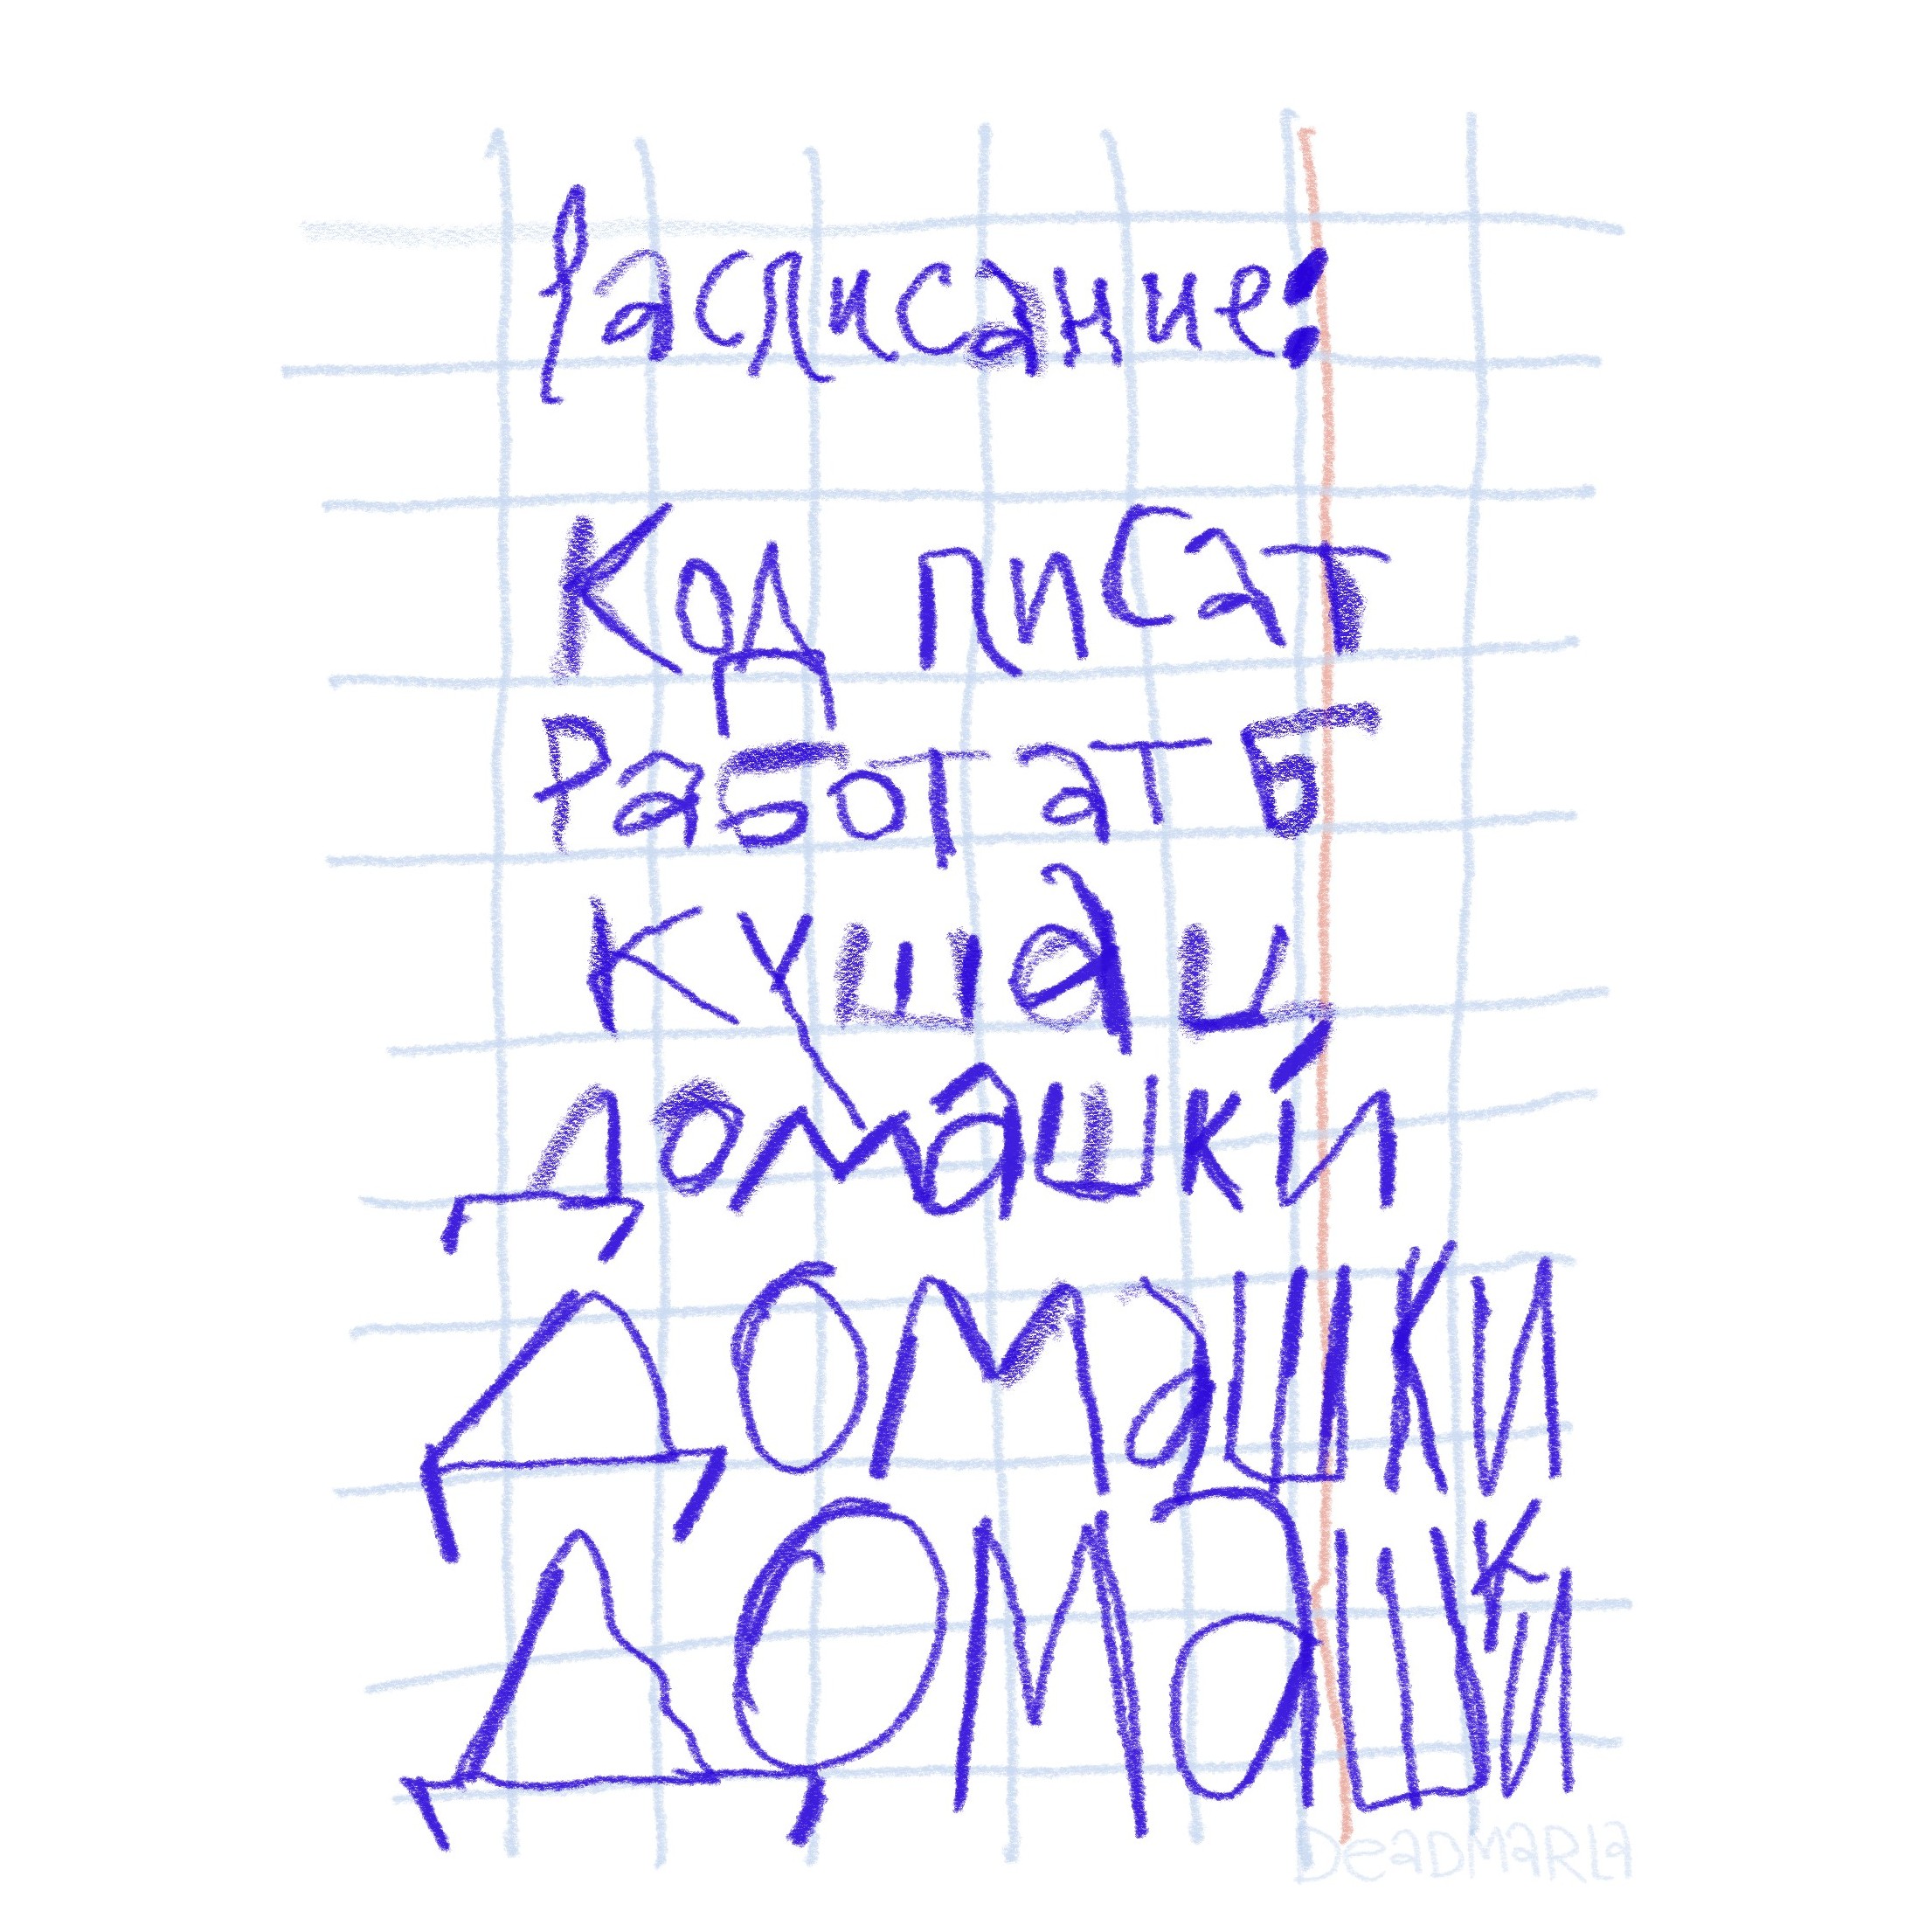 Расписание:
Код писат
Работатб
Кушац
Домашкй
Домашки
Домашки
DeaDMaRLa